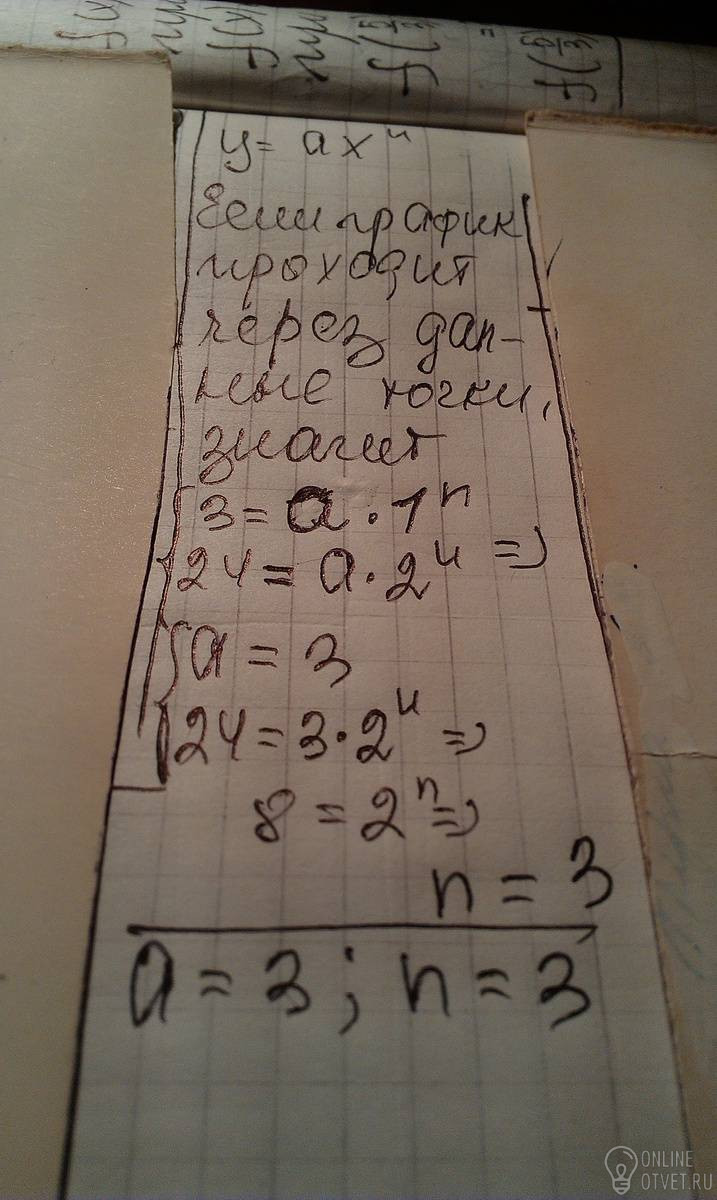 y = ax^n
Если график
проходит
через дан-
ные точки,
значит
{3 = a · 1^n
{24 = a · 2^n =>
{a = 3
{24 = 3 · 2^n =>
8 = 2^n =>
n = 3
a = 3 ; n = 3
ONLINE
OTVET.RU